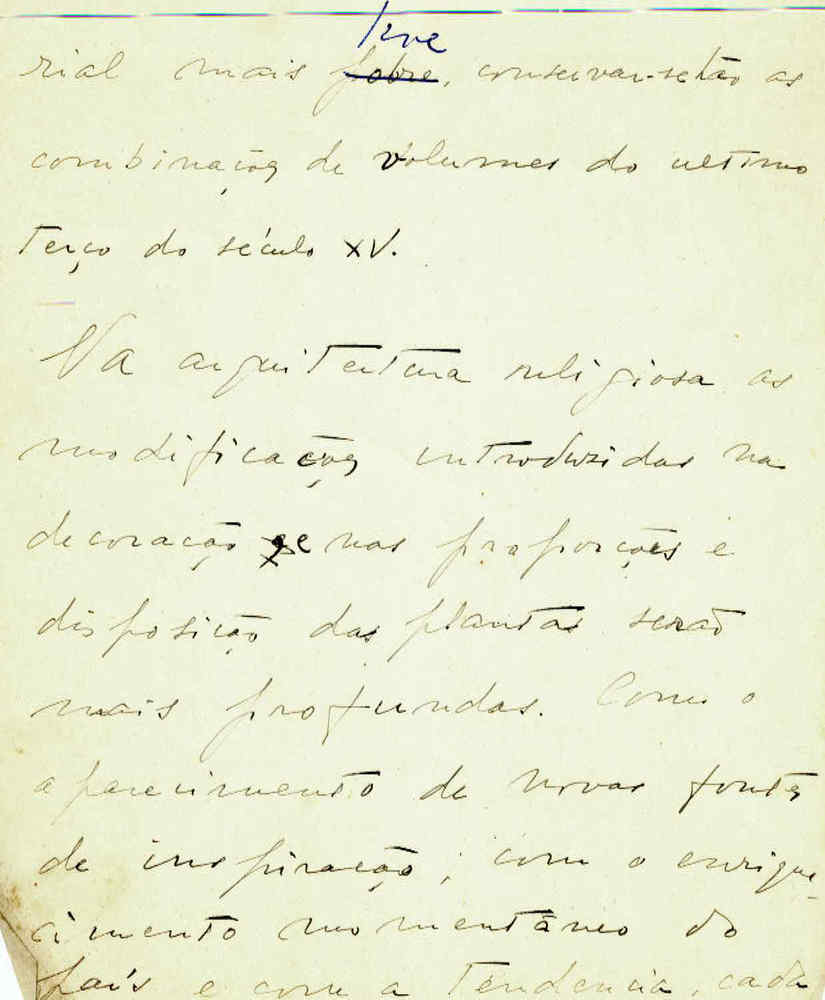 rial mais pobre, conservar-se-hão as
combinações de volumes do ultimo
terço do século XV.
Na arquitectura religiosa as
modificações introduzidas na
decoração e nas proporções e
disposição das plantas serão
mais profundas. Com o
aparecimento de novas fontes
de inspiração, com o enrique-
cimento momentâneo do
país e com a tendencia, cada